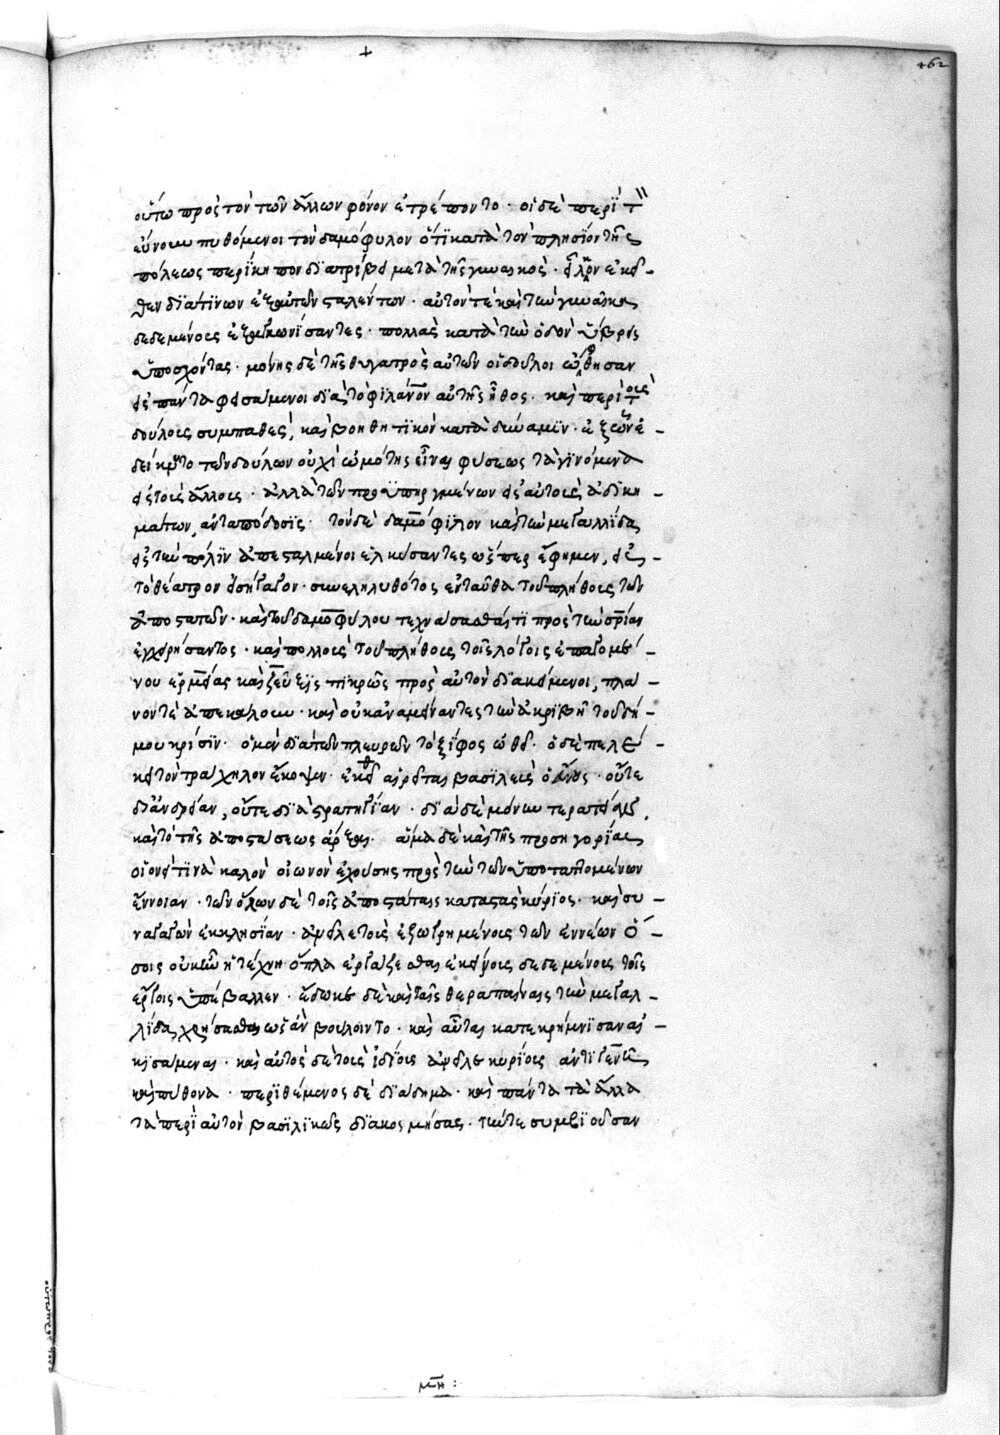 +
462
οὕτω πρὸς τὸν τῶν ἄλλων φόνον ἐτρέποντο· οἱ δὲ περὶ τ
εὔνουν πυθόμενοι τὸν δαμόφυλον ὅτι κατὰ τὸν πλησίον τῆς
πόλεως περίκηπον διατρίβει μετὰ τῆς γυναικὸς· εἷλκον ἐκεῖ-
θεν διά τινων ἐξ αὐτῶν σταλέντων· αὐτόν τε καὶ τὴν γυναῖκα
δεδεμένους ἐξηγκωνίσαντες· πολλὰς κατὰ τὴν ὁδὸν ὕβρεις
ὑποσχόντας· μόνης δὲ τῆς θυγατρὸς αὐτῶν οἱ δοῦλοι ὤφθησαν
εἰς πάντα φεισάμενοι διὰ τὸ φιλάνον αὐτῆς ἦθος· καὶ περὶ τοὺς
δούλους συμπαθὲς, καὶ βοηθητικὸν κατὰ δύναμιν· ἐξ ὧν ἐ-
δείκνυτο τῶν δούλων οὐχὶ ὠμότης εἶναι φύσεως τὰ γινόμενα
εἰς τοὺς ἄλλους· ἀλλὰ τῶν προϋπηργμένων εἰς αὐτοὺς ἀδικη-
μάτων, ἀνταπόδοσις· τὸν δὲ δαμόφιλον καὶ τὴν μεγαλλίδα
εἰς τὴν πόλιν ἀπεσταλμένοι ἑλκύσαντες ὥσπερ ἔφημεν, εἰς-
τὸ θέατρον εἰσήγαγον· συνεληλυθότος ἐνταῦθα τοῦ πλήθους τῶν
ἀποστατῶν· καὶ τοῦ δαμοφύλου τεχνάσασθαί τι πρὸς τὴν σρίαν
ἐγχειρήσαντος· καὶ πολλοὺς τοῦ πλήθους τοῖς λόγοις ἐπαγομέ-
νου ἑρμείας καὶ ζεῦξις πικρῶς πρὸς αὐτὸν διακείμενοι, πλα-
νον τὲ ἀπεκάλουν· καὶ οὐκ ἀναμείναντες τὴν ἀκριβῆ τοῦ δή-
μου κρίσιν· ὁ μὲν διὰ τῶν πλευρῶν τὸ ξίφος ὠθεῖ· ὁ δὲ πελέ-
κει τὸν τράχηλον ἔκοψεν· ἐκεῖθ αἱρεῖται βασιλεὺς ὁ εὔνους· οὔτε
δι' ἀνδρείαν, οὔτε διὰ στρατηγίαν· διὰ δὲ μόνην τερατείαν,
καὶ τὸ τῆς ἀποστάσεως ἄρξαι· ἅμα δὲ καὶ τῆς προσηγορίας
οἱονεί τινα καλὸν οἰωνὸν ἐχούσης πρὸς τὴν τῶν ὑποταττομένων
εὔνοιαν· τῶν ὅλων δὲ τοῖς ἀποστάταις καταστὰς κύριος· καὶ συ-
ναγαγὼν ἐκκλησίαν· ἀνεῖλε τοὺς ἐξωγρημένους τῶν ἐνναίων ὅ-
σοις οὐκ ἦν ἡ τέχνη ὅπλα ἐργάζεσθαι ἐκείνους δεδεμένους τοῖς
ἔργοις ὑπέβαλλεν· ἔδωκε δὲ καὶ ταῖς θεραπαίναις τὴν μεγαλ-
λίδα χρήσασθαι ὡς ἂν βούλοιντο· καὶ αὗται κατεκρήμνισαν αἰ-
κισάμεναι· καὶ αὐτὸς δὲ τοὺς ἰδίους ἀνεῖλε κυρίους ἀντιγένη
καὶ πύθωνα· περιθέμενος δὲ διάδημα· καὶ πάντα τὰ ἄλλα
τὰ περὶ αὑτὸν βασιλικῶς διακοσμήσας· τήν τε συμβιοῦσαν
μη :